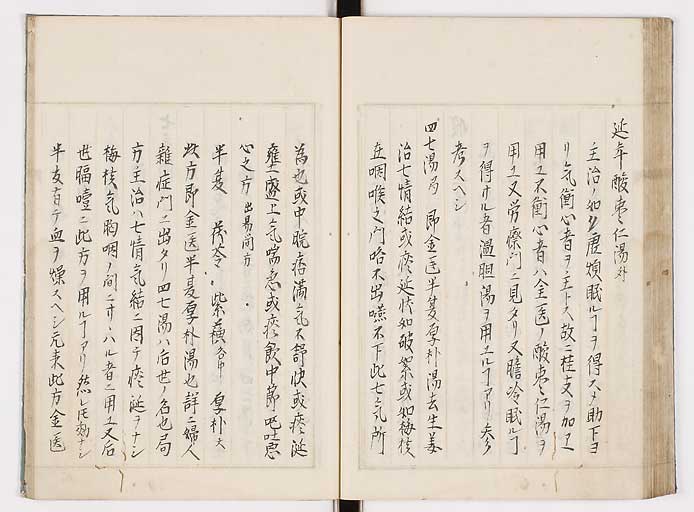 延年酸棗仁湯外
主治ノ如ク虚煩眠ルヿヲ得ス〆助下ヨ
リ気衝心者ヲ主トス故ニ桂支ヲ加フ
用ユ不衝心者ハ金匱ノ酸棗仁湯ヲ
用ユ又労瘵門ニ見タリ又膽冷眠ルヿ
ヲ得サル者温胆湯ヲ用ユルヿアリ参
考スヘシ
四七湯局 即金匱半夏厚朴湯去生姜
治七情結或痰延状如破絮或如梅核
在咽喉之門咯不出嚥不下此七気所
為也或中脘痞満気不舒快或痰涎
壅盛上気喘急或痰飲中節呕吐悪
心之方 出易簡方
半夏 茯苓 紫蘓各中 厚朴大
此方即金医半夏厚朴湯也詳ニ婦人
雜症門ニ出タリ四七湯ハ后世ノ名也局
方主治ハ七情気結ニ因テ痰涎ヲナシ
梅核気胸咽ノ間ニサハル者ニ用ユ又后
世膈噎ニ此方ヲ用ルヿアリ然レ𪜈効ナシ
半夏有テ血ヲ燥スヘシ元来此方金医